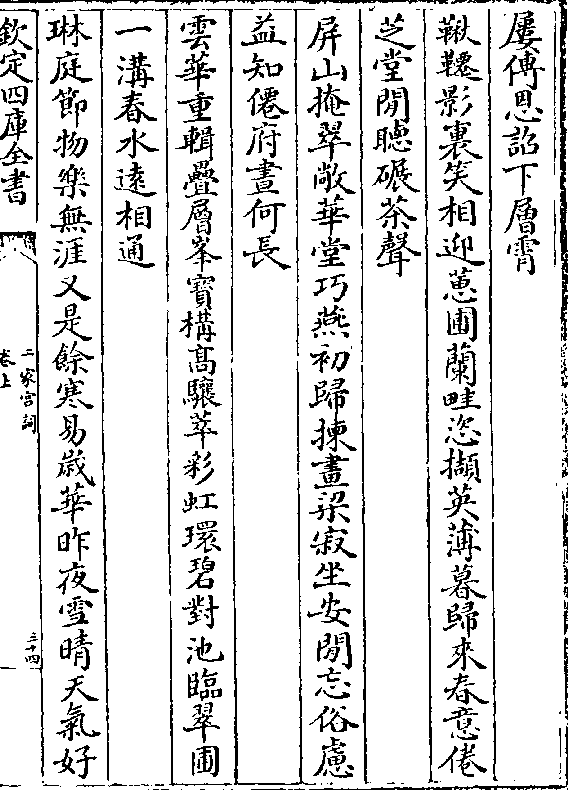 屢傳恩詔下層霄
鞦韆影裏笑相迎蕙圃蘭畦恣擷英薄暮歸來春意倦
芝堂閒聽碾茶聲
屏山掩翠敞華堂巧燕初歸揀畫梁寂坐安閒忘俗慮
益知僊府晝何長
雲華重輯疊層峯寶構髙驤萃彩虹環碧對池臨翠圃
一溝春水遠相通
琳庭節物樂無涯又是餘寒易歲華昨夜雪晴天氣好
欽定四庫全書
二家宮詞
卷上
三十四